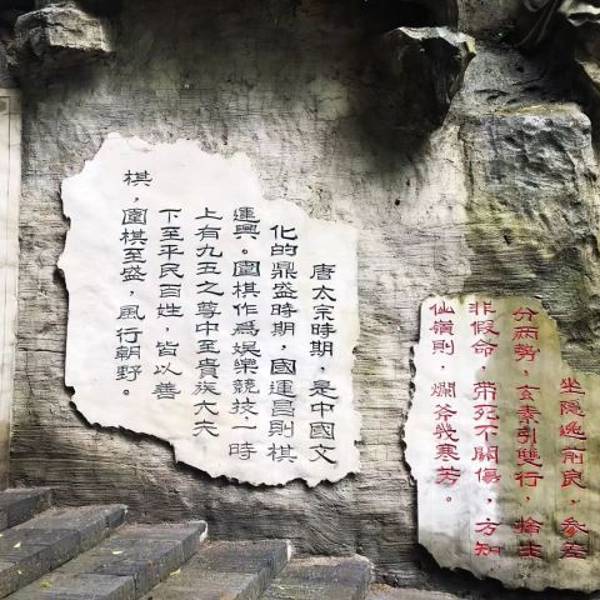 坐隱逸前良，參差
分兩勢，玄素引雙行，捨生
非假命，帶死不關傷，方知
仙嶺則，爛斧幾寒芳。
唐太宗時期，是中國文
化的鼎盛時期，國運昌則棋
運興。圍棋作爲娛樂競技，一時
上有九五之尊中至貴族大夫
下至平民百姓，皆以善
棋，圍棋至盛，風行朝野。